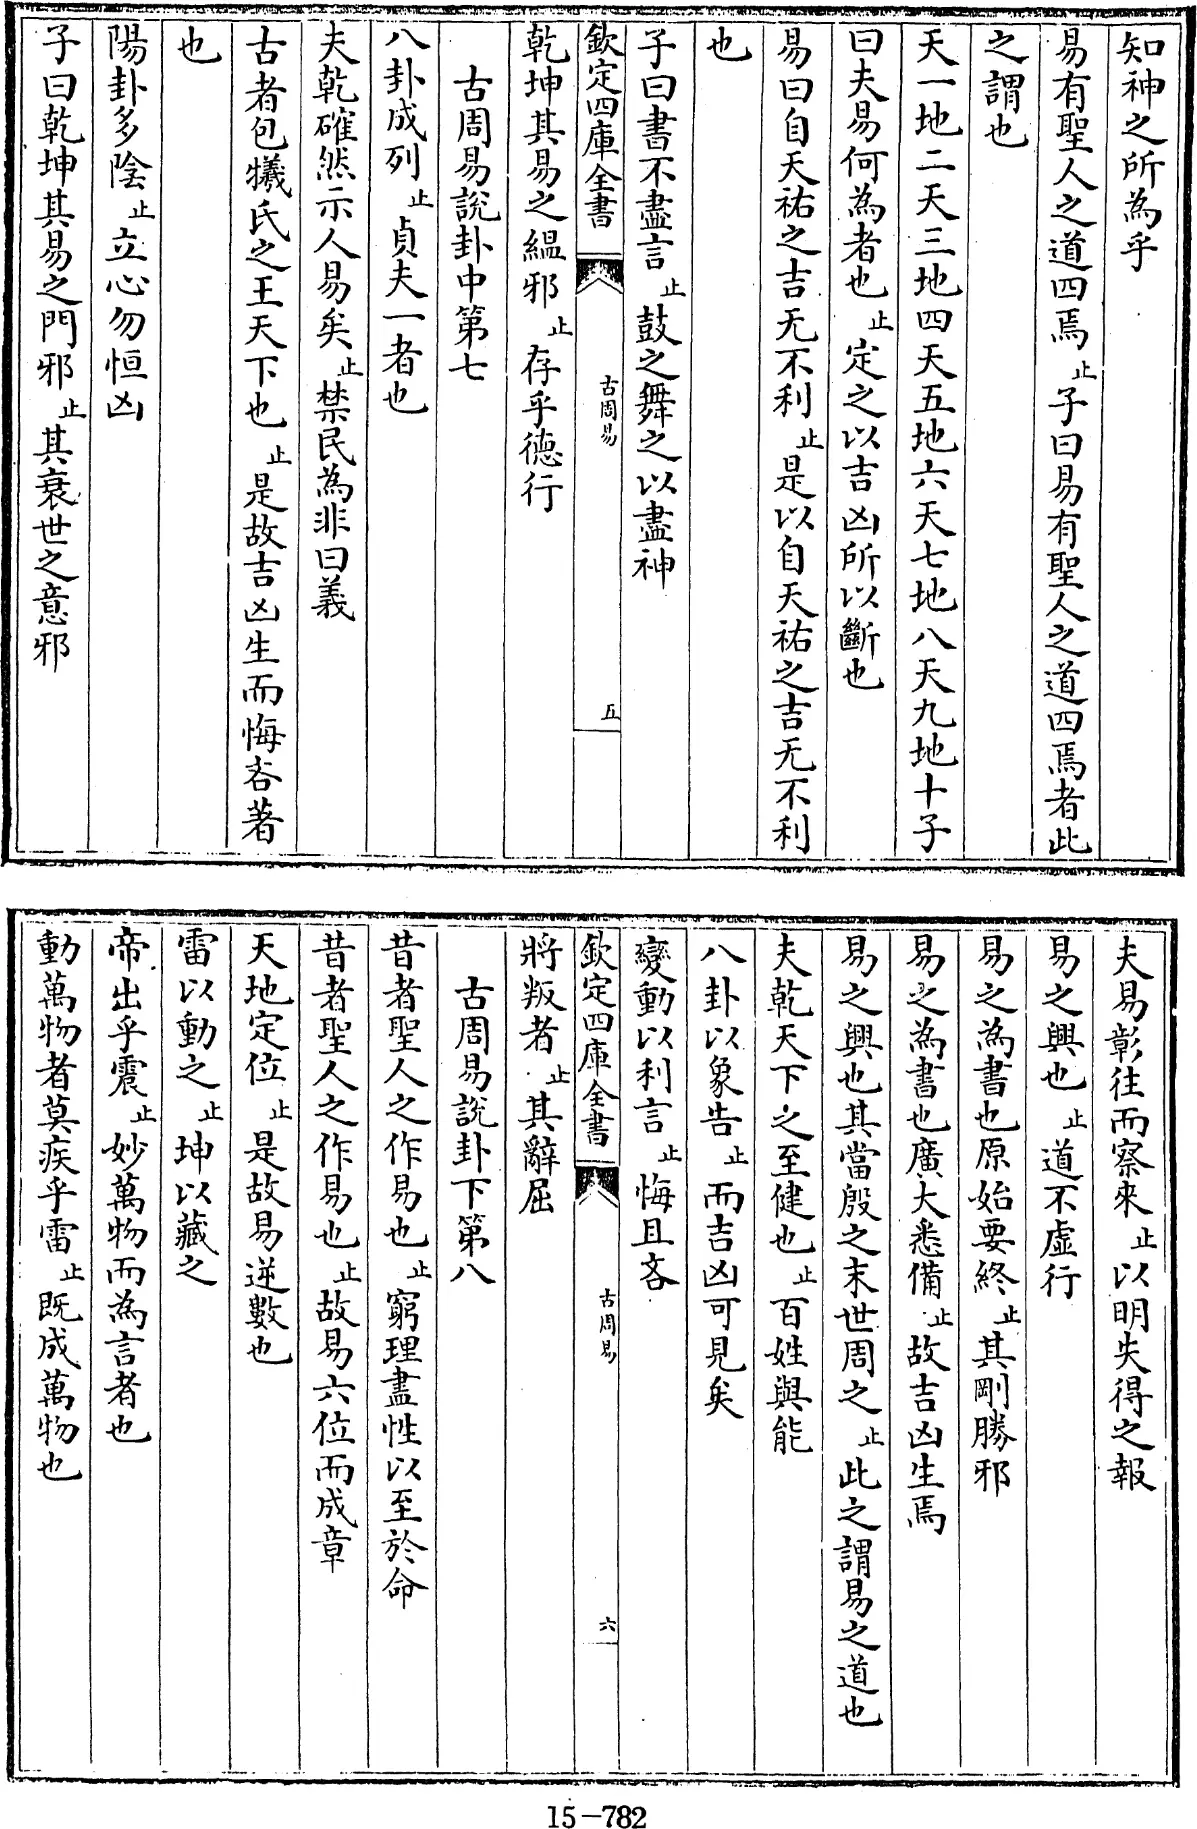 知神之所為乎
易有聖人之道四焉止子曰易有聖人之道四焉者此
之謂也
天一地二天三地四天五地六天七地八天九地十子
曰夫易何為者也止定之以吉凶所以斷也
易曰自天祐之吉无不利止是以自天祐之吉无不利
也
子曰書不盡言止鼓之舞之以盡神
欽定四庫全書
古周易
五
乾坤其易之緼邪止存乎德行
古周易說卦中第七
八卦成列止貞夫一者也
夫乾確然示人易矣止禁民為非曰義
古者包犧氏之王天下也止是故吉凶生而悔吝著
也
陽卦多陰止立心勿恒凶
子曰乾坤其易之門邪止其衰世之意邪
夫易彰往而察來止以明失得之報
易之興也止道不虛行
易之為書也原始要終止其剛勝邪
易之為書也廣大悉備止故吉凶生焉
易之興也其當殷之末世周之止此之謂易之道也
夫乾天下之至健也止百姓與能
八卦以象告止而吉凶可見矣
變動以利言止悔且吝
欽定四庫全書
古周易
六
將叛者止其辭屈
古周易說卦下第八
昔者聖人之作易也止窮理盡性以至於命
昔者聖人之作易也止故易六位而成章
天地定位止是故易逆數也
雷以動之止坤以藏之
帝出乎震止妙萬物而為言者也
動萬物者莫疾乎雷止既成萬物也
15-782